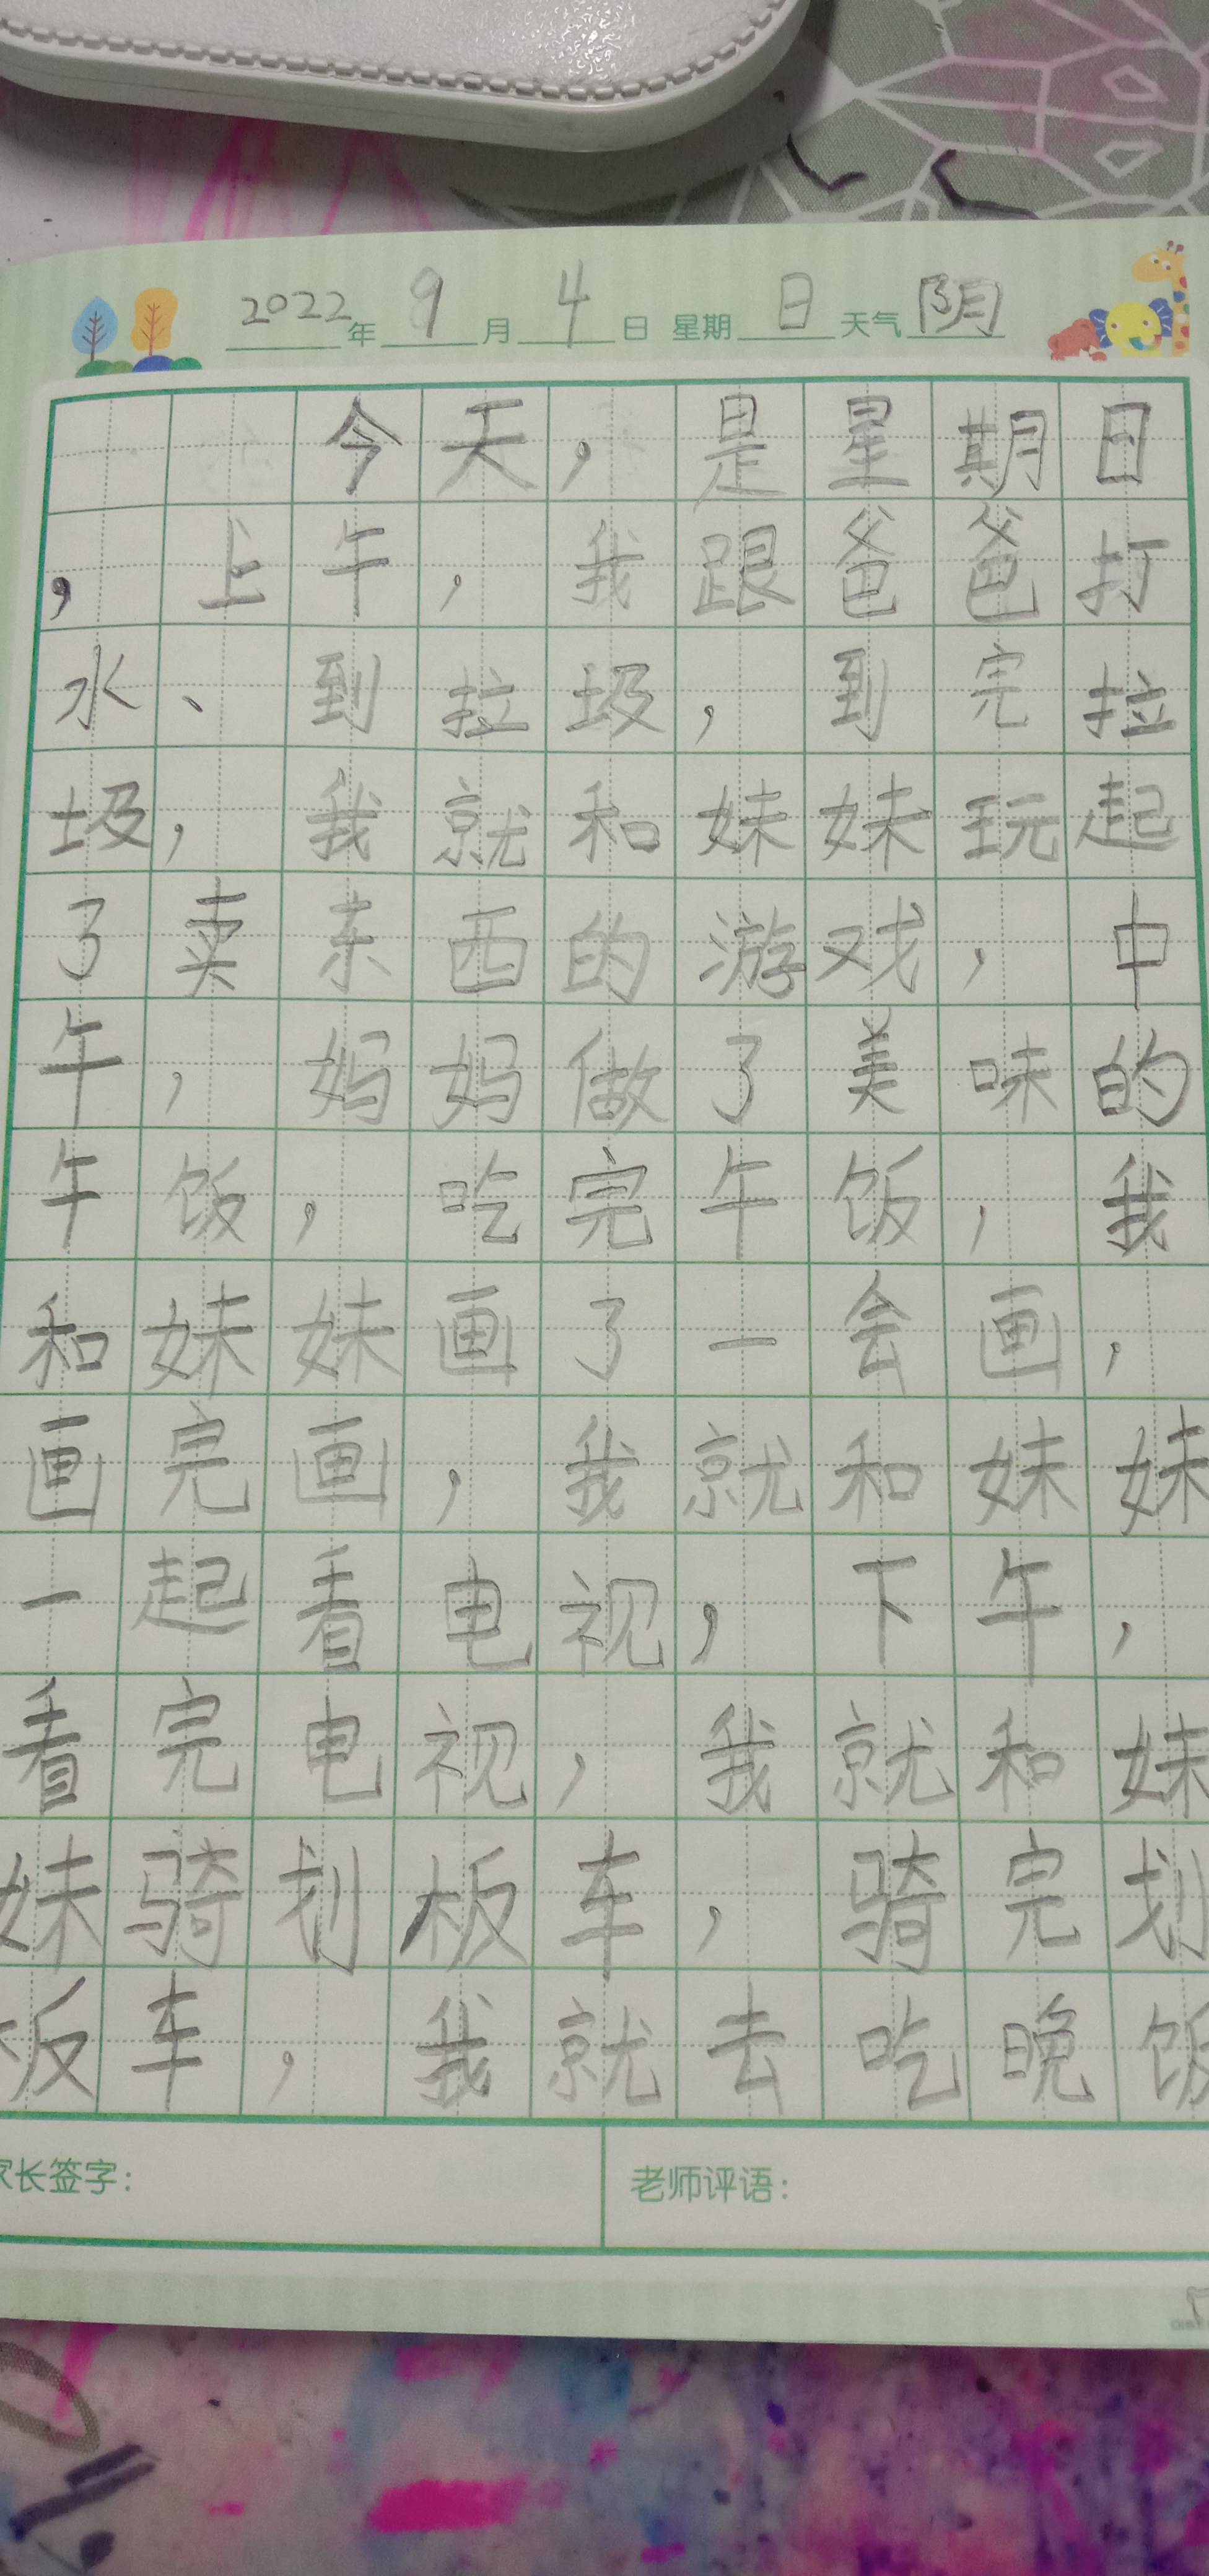 2022年9月4日 星期日 天气阴
今天，是星期日
，上午，我跟爸爸打
水、到拉圾，到完拉
圾，我就和妹妹玩起
了卖东西的游戏，中
午，妈妈做了美味的
午饭，吃完午饭，我
和妹妹画了一会画，
画完画，我就和妹妹
一起看电视，下午，
看完电视，我就和妹
妹骑划板车，骑完划
板车，我就去吃晚饭
家长签字： 老师评语：